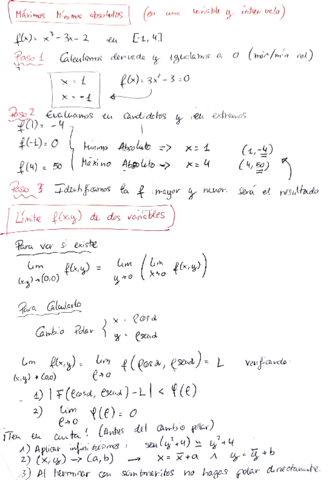 Máximos Mínimos absolutos (en una variable y intervalo)
f(x) = x³ - 3x - 2 en [-1, 4]
Paso 1 Calculamos derivada y igualamos a 0 (máx/mín rel)
x = 1
x = -1
f(x) = 3x² - 3 = 0
Paso 2 Evaluamos en candidatos y en extremos
f(1) = -4
f(-1) = 0 Mínimo Absoluto => x = 1 (1, -4)
f(4) = 50 Máximo Absoluto => x = 4 (4, 50)
Paso 3 Identificamos la f mayor y menor. será el resultado
Límite f(x,y) de dos variables
Para ver si existe
lim (x,y)→(0,0) f(x,y) = lim y→0 ( lim x→0 f(x,y) )
Para Calcularlo
Cambio Polar { x = ρcosα
y = ρsenα
lim (x,y)→(0,0) f(x,y) = lim ρ→0 f(ρcosα, ρsenα) = L verificando:
1) |F(ρcosα, ρsenα) - L| < f(ρ)
2) lim ρ→0 f(ρ) = 0
¡Ten en cuenta! (Antes del cambio polar)
1) Aplicar infinitésimos: sen(y²+4) ≅ y²+4
2) (x,y) → (a,b) → x = x̄ + a ∧ y = ȳ + b
3) Al terminar con sumandos no hagas polar directamente